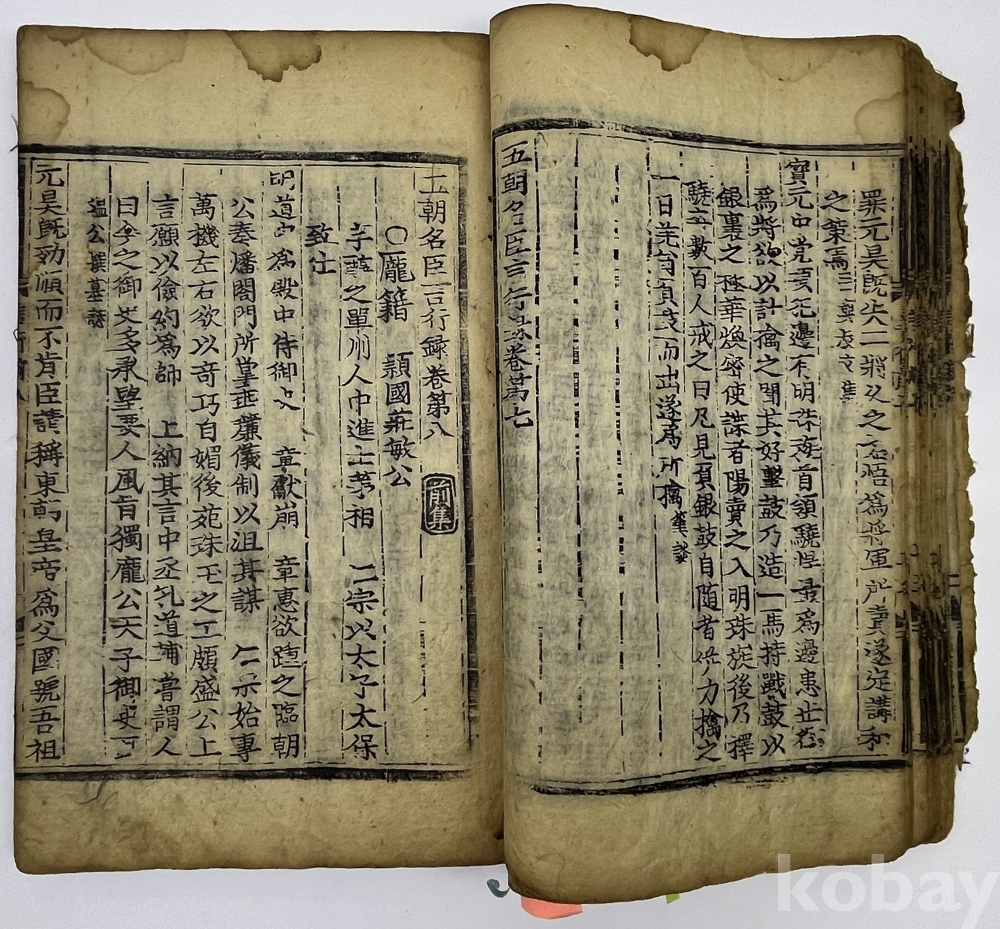 羅元昊旣失二將久之方悟爲將軍所賣遂定講和
之策焉
寶元中党項犯邊有明珠族首領驍悍最爲邊患
爲將欲以計擒之聞其好擊鼓乃造一馬持戰鼓以
銀裹之極華煥密使諜者陽賣之入明珠族後乃擇
驍卒數百人戒之曰凡見負銀鼓自隨者併力擒之
一日羌酋負鼓而出遂爲所擒 筆談
五朝名臣言行錄卷第七
五朝名臣言行録卷第八
前集
○龐籍 潁國莊敏公
字醇之單州人中進士第相 仁宗以太子太保
致仕
明道中爲殿中侍御史 章獻崩 章惠欲踵之臨朝
公奏燔閤門所掌垂簾儀制以沮其謀 仁宗始專
萬機左右欲以奇巧自媚後苑珠玉之工頗盛公上
言願以儉約爲師 上納其言中丞孔道輔嘗謂人
曰今之御史多承望要人風旨獨龐公天子御史
溫公撰墓誌
元昊旣効順而不肯臣請稱東朝皇帝爲父國號吾祖
kobay